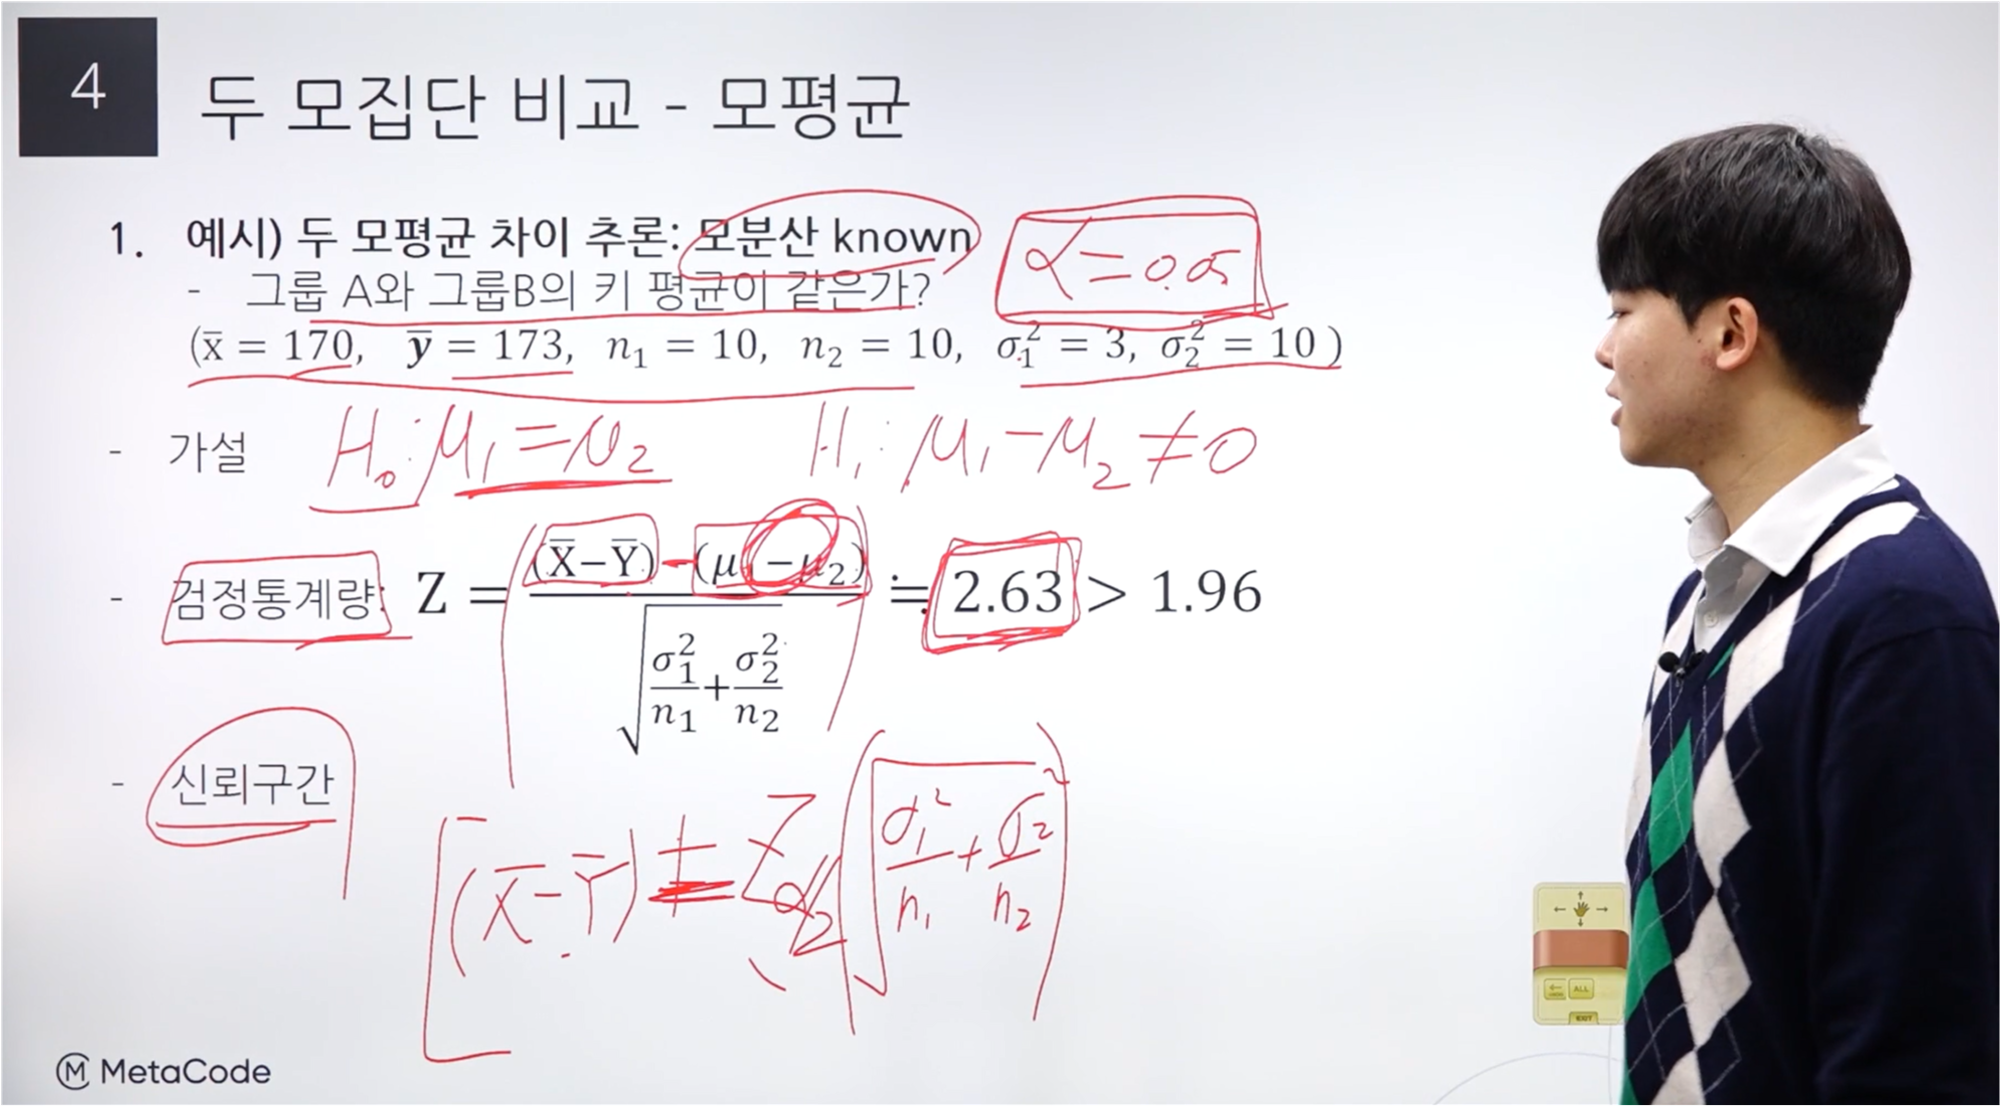 4
두 모집단 비교 - 모평균
1. 예시) 두 모평균 차이 추론: 모분산 known
α = 0.05
- 그룹 A와 그룹B의 키 평균이 같은가?
(x̅ = 170, y̅ = 173, n₁ = 10, n₂ = 10, σ₁² = 3, σ₂² = 10 )
- 가설 H₀: μ₁ = μ₂ H₁: μ₁ - μ₂ ≠ 0
- 검정통계량: Z = (X̅-Y̅) - (μ₁-μ₂) / √(σ₁²/n₁ + σ₂²/n₂) ≒ 2.63 > 1.96
- 신뢰구간
[(X̅-Y̅) ± Z α/2 (√(σ₁²/n₁ + σ₂²/n₂))
MetaCode
ALL
EXIT